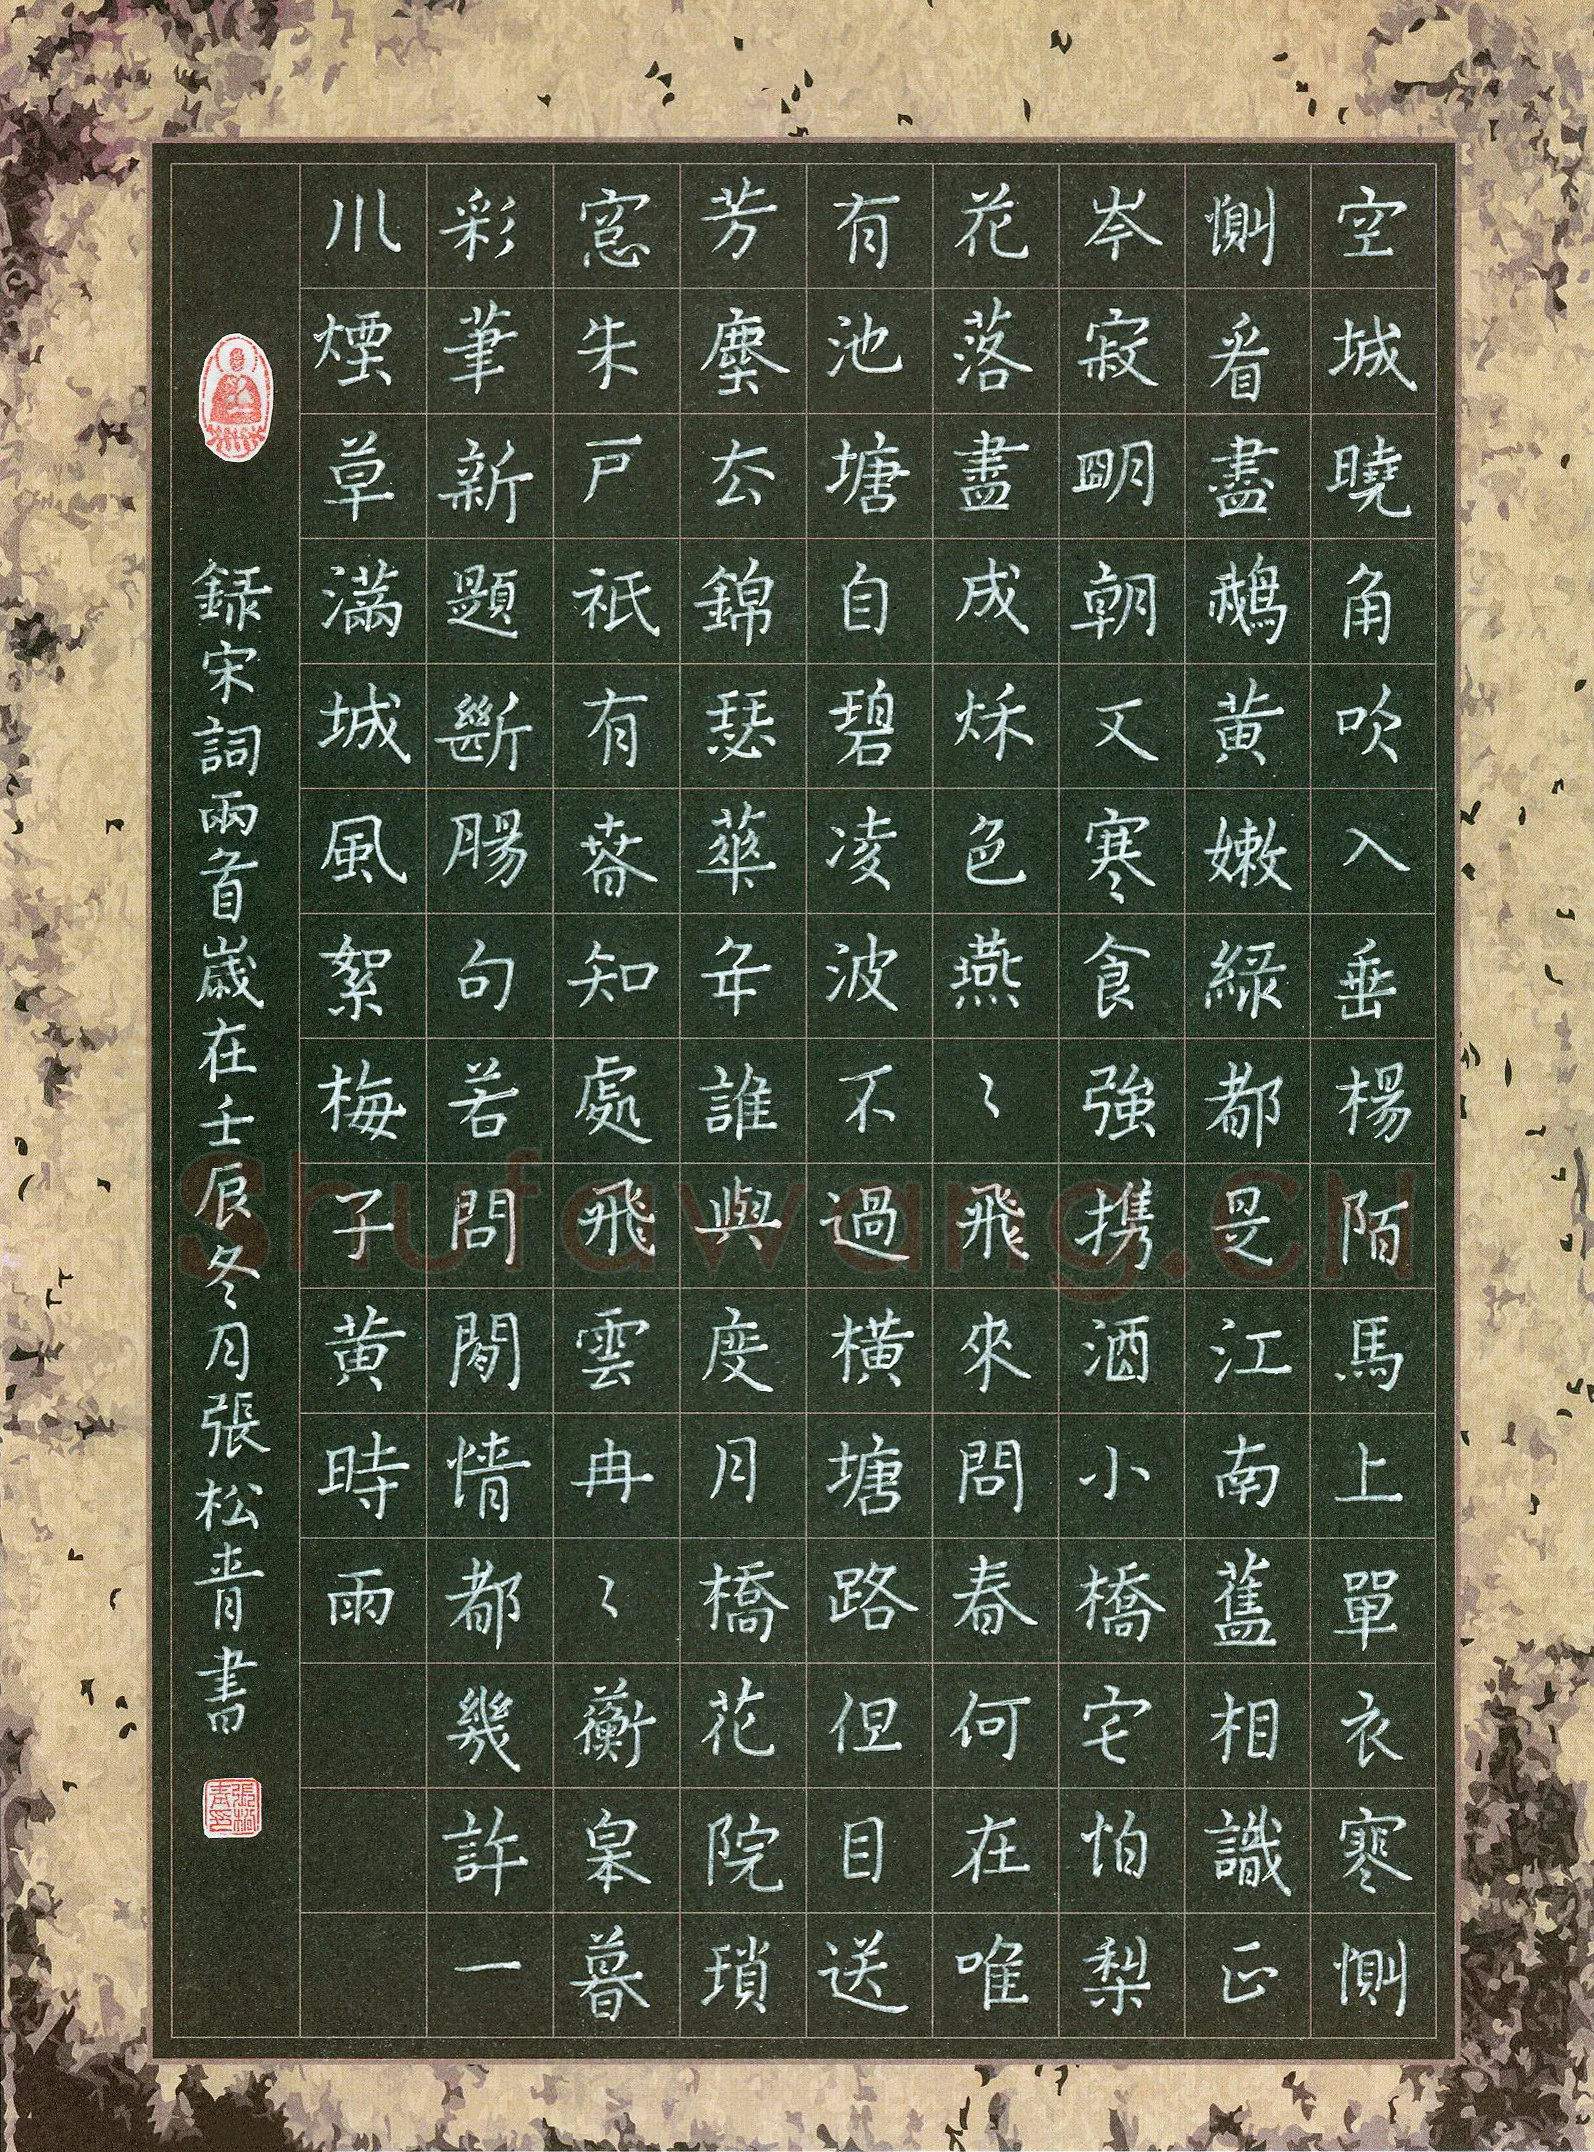 空城曉角吹入垂楊陌馬上單衣寒惻
惻看盡鵝黃嫩綠都是江南舊相識正
岑寂朙朝又寒食強携酒小橋宅怕梨
花落盡成秌色燕〻飛來問春何在唯
有池塘自碧凌波不過橫塘路但目送
芳塵去錦瑟華年誰與度月橋花院瑣
窓朱戶祇有萅知處飛雲冉〻蘅皋暮
彩筆新題斷腸句若問閒情都幾許一
川煙草滿城風絮梅子黃時雨
録宋詞兩首歲在壬辰冬月張松青書
張松青印
Shufawang.CN